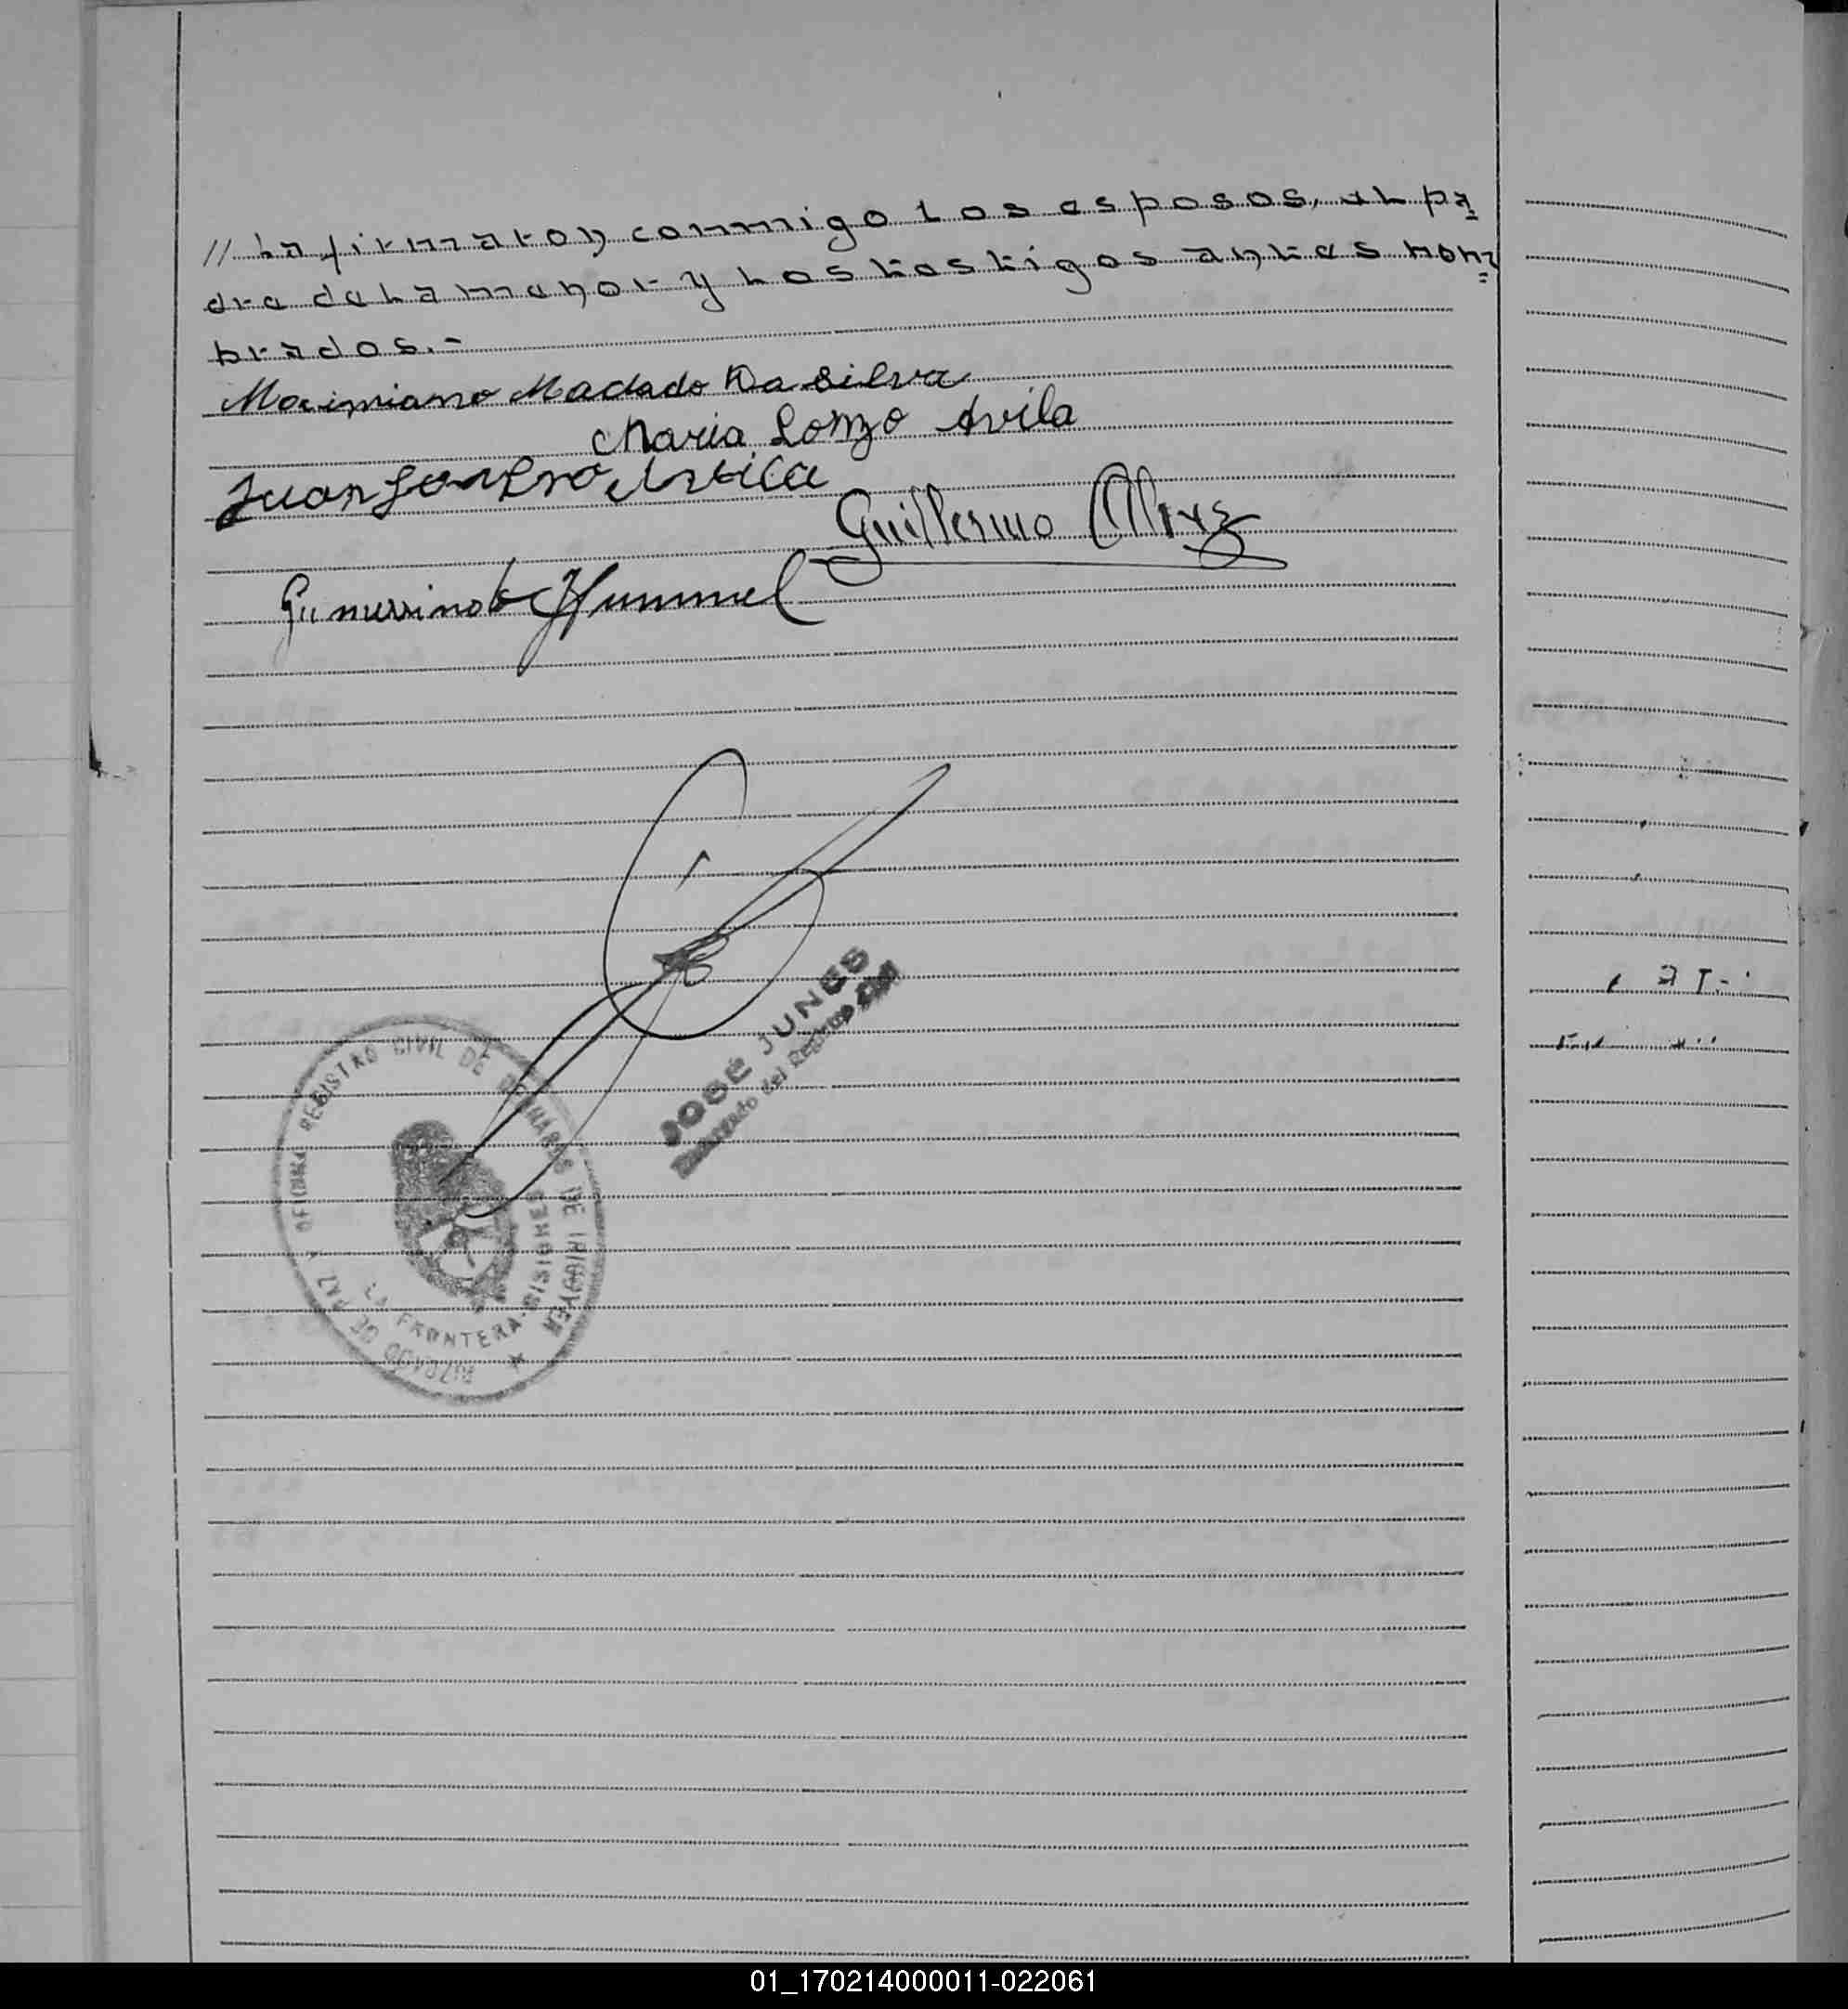 // La firmaron conmigo los esposos, el pa
dre de la menor y los testigos antes nom
brados.-
Maximiano Machado Da Silva
Maria Lonzo Avila
Juan Lonzo Avila
Guillermo Alvez
Gumersindo Hummel
JOSÉ JUNES
Encargado del Registro Civil
JUZGADO DE PAZ Y OFICINA REGISTRO CIVIL DE BERNARDO DE IRIGOYEN
LA FRONTERA-MISIONES
01_170214000011-022061